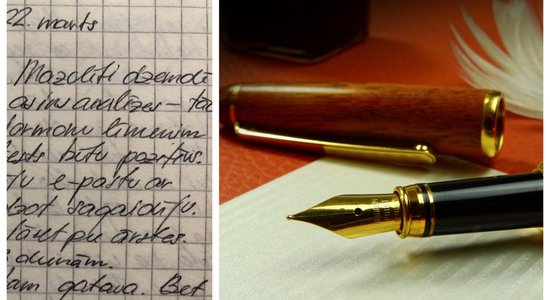 22. marts
Mazolīti dzemdē
asins analīzes - tā
hormonu līmenim
tests būtu pozitīvs.
e-pastu ar
sagaidīju.
pie ārstes.
domām.
gatava. Bet